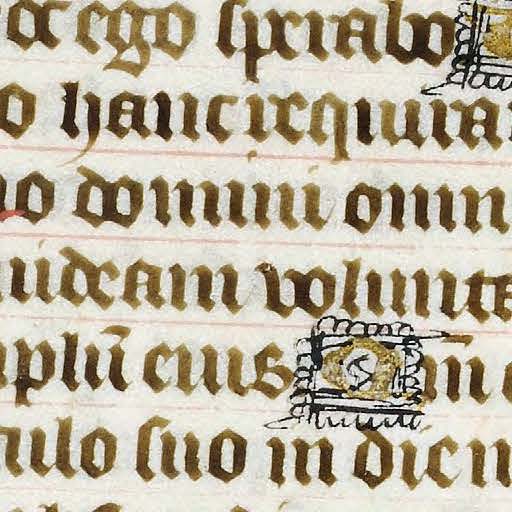 oc ego sperabo
o hanc requira
mo domini omn
uideam volunta
mplū eius
culo suo in die m